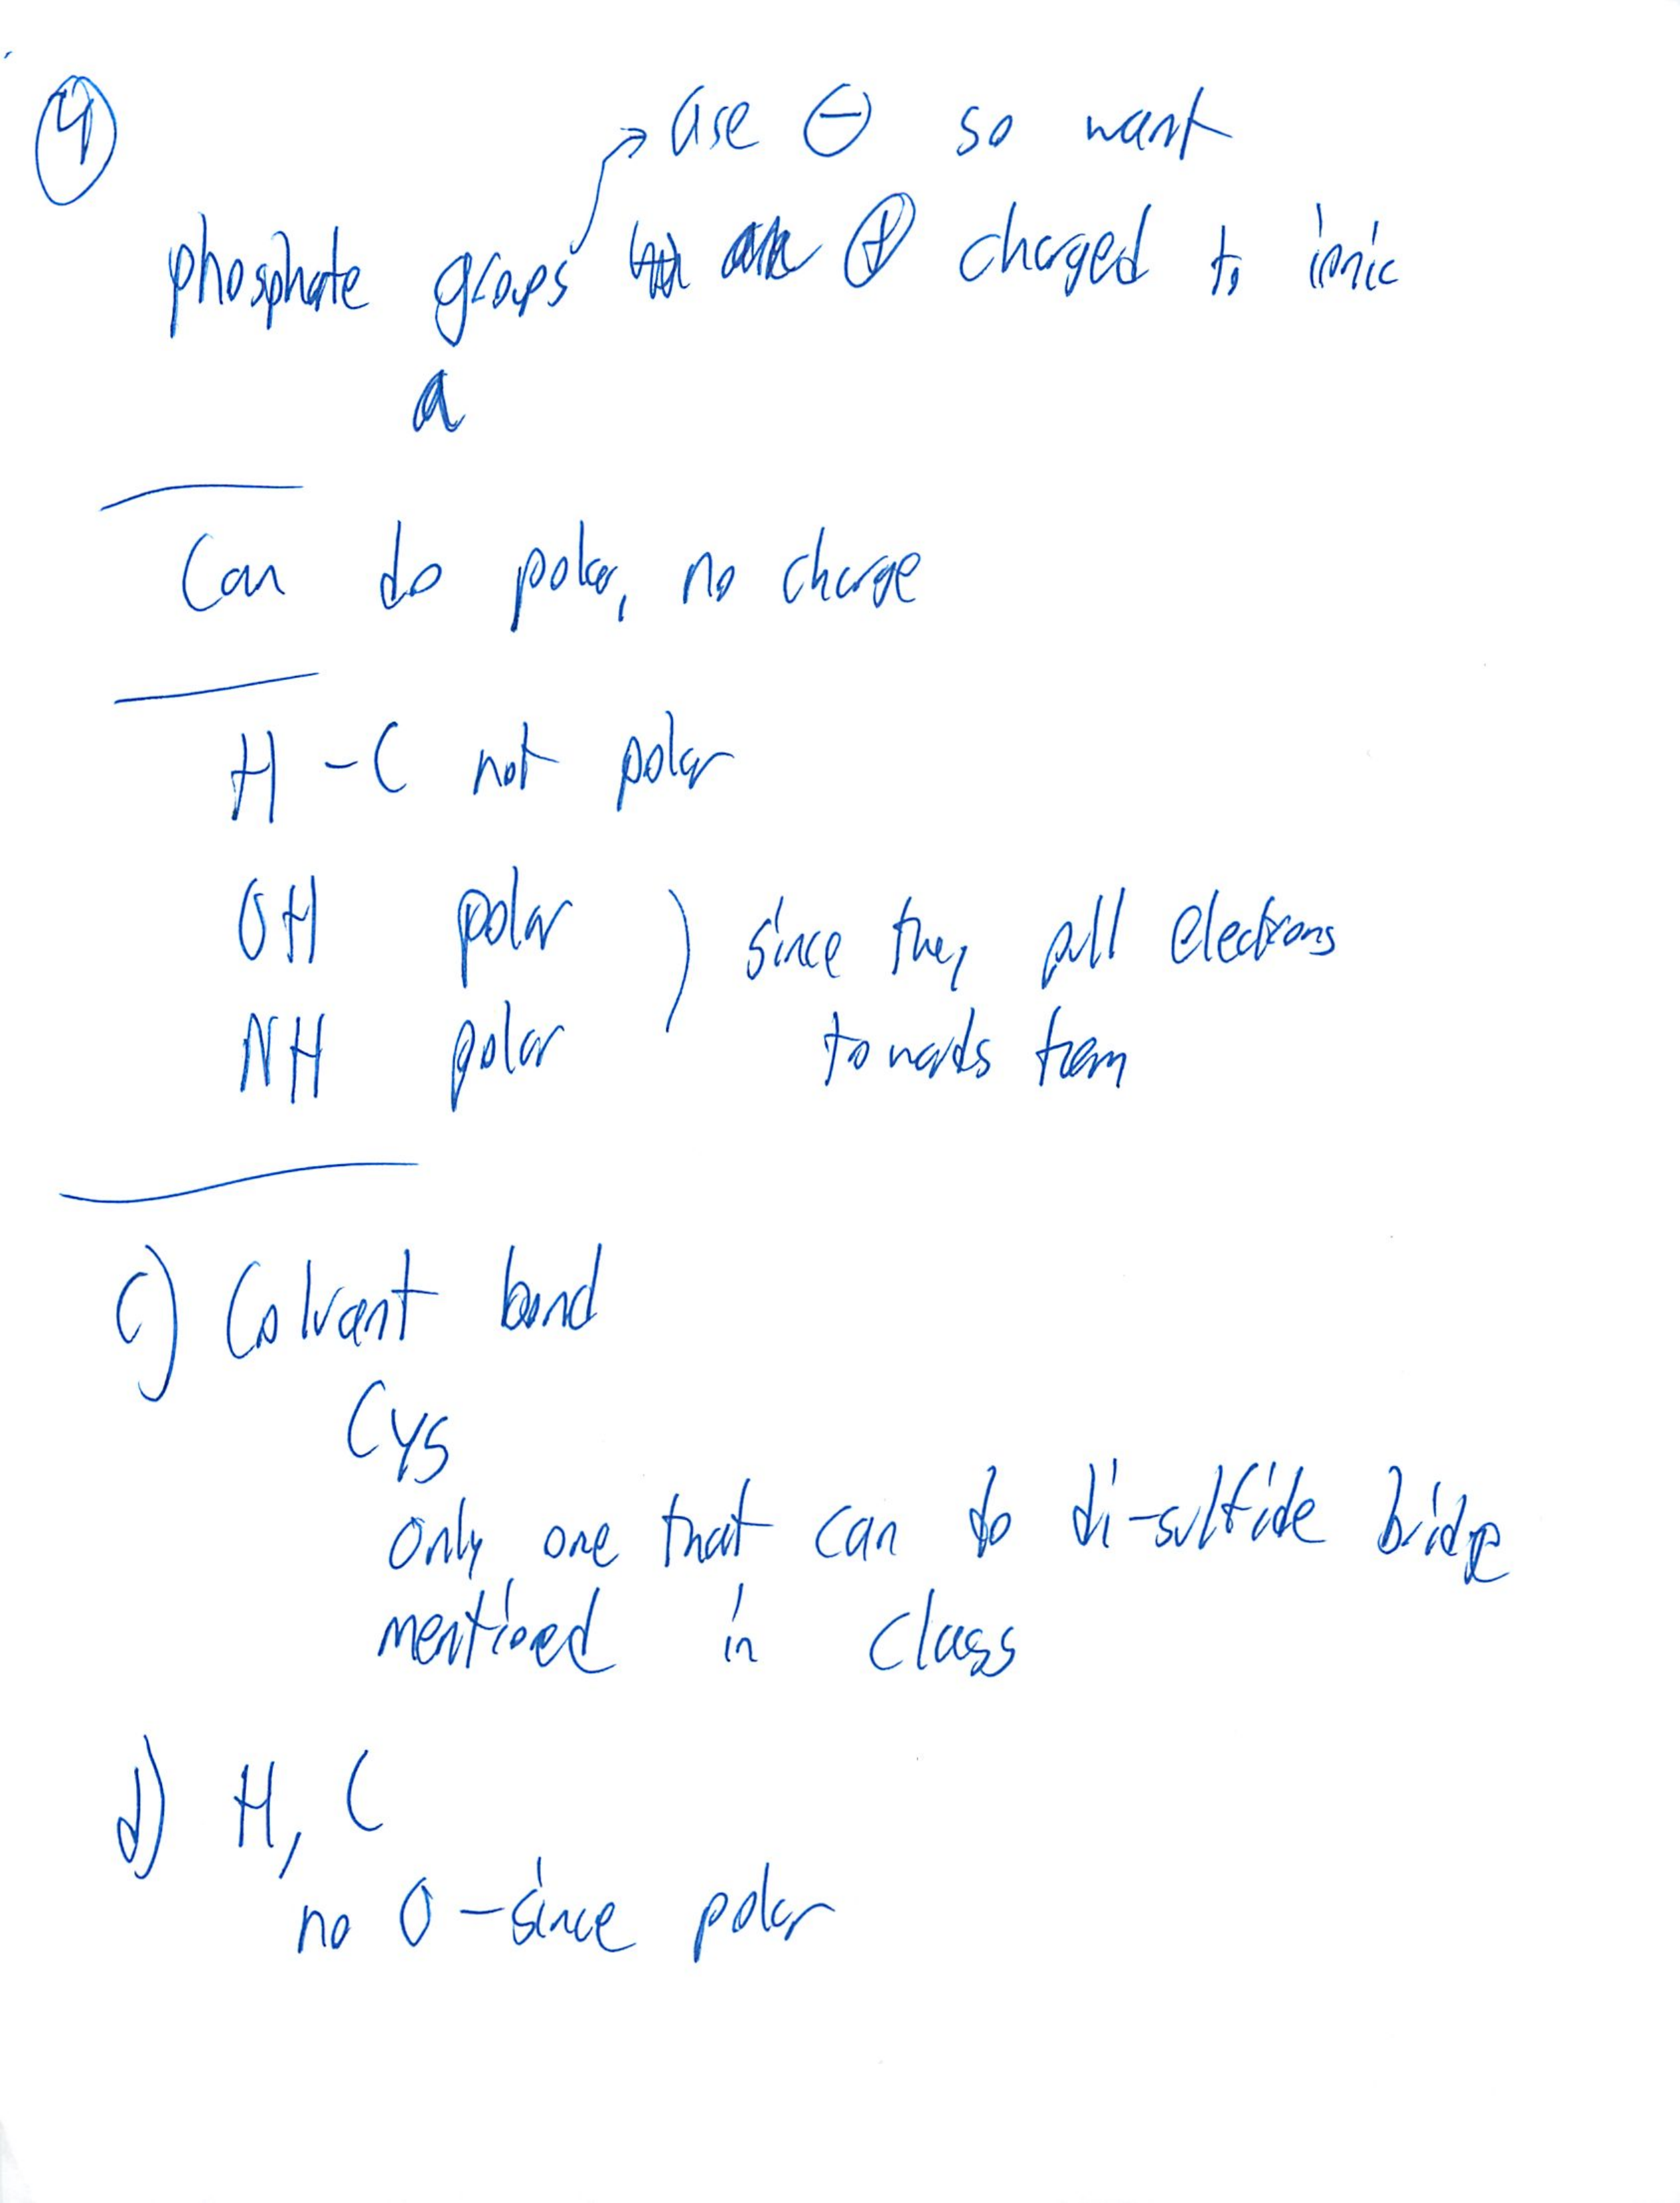 4
are ⊖ so want
phosphate groups ⊕ charged to ionic
a
Can do polar, no charge
H - C not polar
OH polar ) since they pull electrons
NH polar towards them
c) Colvant bond
Cys
only one that can do di-sulfide bridge
mentioned in class
d) H, C
no O - since polar